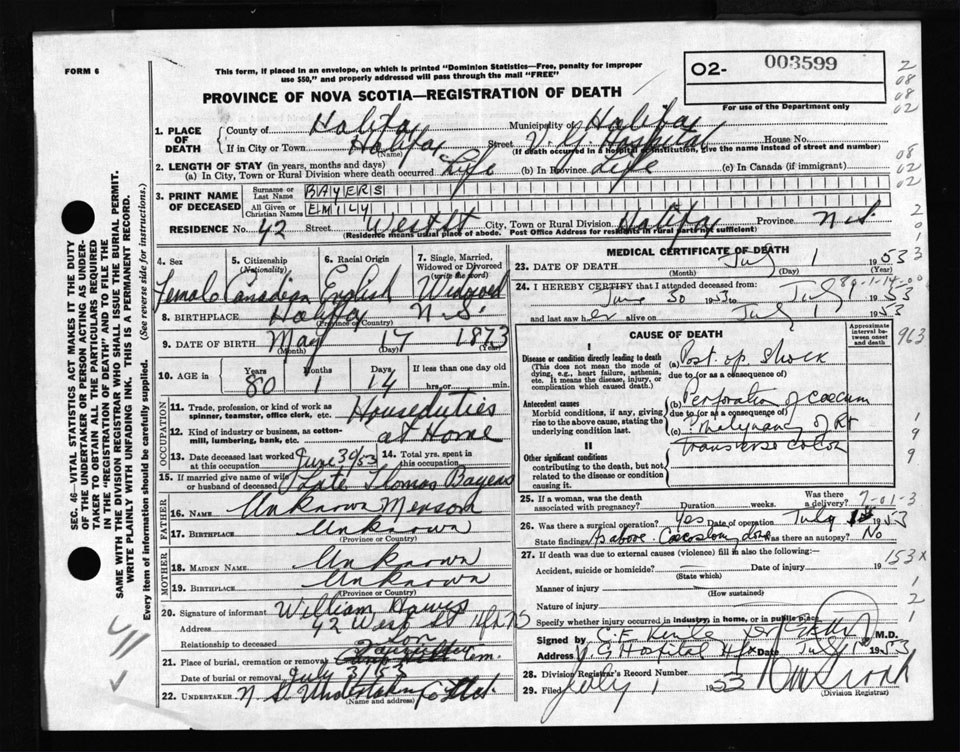 FORM 6
This form, if placed in an envelope, on which is printed "Dominion Statistics—Free, penalty for improper
use $50," and properly addressed will pass through the mail "FREE"
O2- 003599
For use of the Department only
PROVINCE OF NOVA SCOTIA—REGISTRATION OF DEATH
2
08
08
02
1. PLACE OF DEATH
County of Halifax Municipality of Halifax
If in City or Town Halifax Street V. G. Hospital House No.
(Name) (If death occurred in a hospital or institution, give the name instead of street and number)
08
02
02
2. LENGTH OF STAY (in years, months and days)
(a) In City, Town or Rural Division where death occurred Life (b) In Province Life (c) In Canada (if immigrant)
3. PRINT NAME OF DECEASED
Surname or Last Name BAYERS
All Given or Christian Names EMILY
RESIDENCE No. 42 Street West St City, Town or Rural Division Halifax Province N.S.
(Residence means usual place of abode. Post Office Address for residents in rural parts not sufficient)
2
0
1
4. Sex
Female
5. Citizenship
(Nationality)
Canadian
6. Racial Origin
English
7. Single, Married, Widowed or Divorced
(write the word)
Widowed
8. BIRTHPLACE Halifax N.S.
(Province or Country)
9. DATE OF BIRTH May 17 1873
(Month) (Day) (Year)
10. AGE in
Years Months Days If less than one day old
80 1 14 hrs. or min.
OCCUPATION
11. Trade, profession, or kind of work as
spinner, teamster, office clerk, etc. Houseduties
12. Kind of industry or business, as cotton-
mill, lumbering, bank, etc. at Home
13. Date deceased last worked
at this occupation June 30/53
14. Total yrs. spent in
this occupation
15. If married give name of wife
or husband of deceased Late Thomas Bayers
FATHER
16. NAME Unknown Merson
17. BIRTHPLACE Unknown
(Province or Country)
MOTHER
18. MAIDEN NAME Unknown
19. BIRTHPLACE Unknown
(Province or Country)
20. Signature of informant William Hawes
Address 42 West St Hfx N.S
Relationship to deceased Son
21. Place of burial, cremation or removal Cem.
Date of burial or removal July 3/53
22. UNDERTAKER N. S. Undertaking Co Ltd.
(Name and address)
MEDICAL CERTIFICATE OF DEATH
23. DATE OF DEATH July 1 1953
(Month) (Day) (Year)
3
24. I HEREBY CERTIFY that I attended deceased from:
June 30 1953 to July 1 1953
and last saw her alive on July 1 1953
CAUSE OF DEATH
Approximate interval between onset and death
963
I
Disease or condition directly leading to death
(This does not mean the mode of
dying, e.g., heart failure, asthenia,
etc. It means the disease, injury, or
complication which caused death.)
(a) Post. op Shock
due to (or as a consequence of)
Antecedent causes
Morbid conditions, if any, giving
rise to the above cause, stating the
underlying condition last.
(b) Perforation of caecum
due to (or as a consequence of)
(c) Malignancy of Rt
transverse colon
II
Other significant conditions
contributing to the death, but not
related to the disease or condition
causing it.
9
9
25. If a woman, was the death
associated with pregnancy? Duration weeks. Was there a delivery?
7-01-3
26. Was there a surgical operation? Yes Date of operation July 1st 1953
State findings As above. Caecostomy done Was there an autopsy? No
27. If death was due to external causes (violence) fill in also the following:—
Accident, suicide or homicide? Date of injury 19
(State which)
153X
Manner of injury
(How sustained)
Nature of injury
Specify whether injury occurred in industry, in home, or in public place
1
2
1
Signed by C. E. M.D.
Address V. G Hospital Hfx Date July 1st 1953
28. Division Registrar's Record Number
29. Filed July 1 1953
(Division Registrar)
SEC. 46—VITAL STATISTICS ACT MAKES IT THE DUTY
OF THE UNDERTAKER OR PERSON ACTING AS UNDER-
TAKER TO OBTAIN ALL THE PARTICULARS REQUIRED
IN THE "REGISTRATION OF DEATH" AND TO FILE THE
SAME WITH THE DIVISION REGISTRAR WHO SHALL ISSUE THE BURIAL PERMIT.
WRITE PLAINLY WITH UNFADING INK. THIS IS A PERMANENT RECORD.
Every item of information should be carefully supplied. (See reverse side for instructions.)